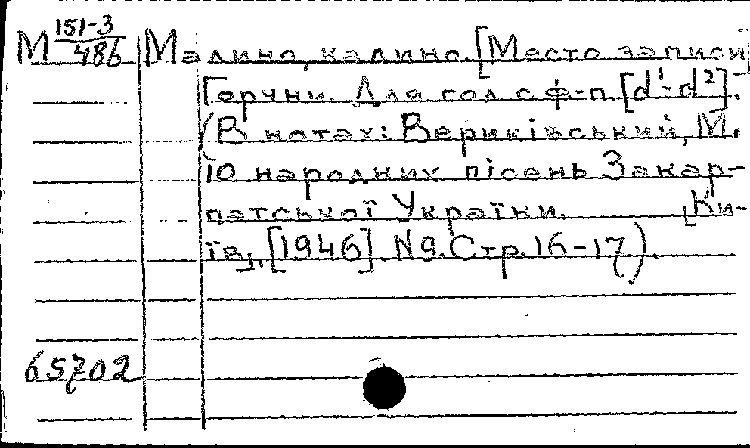 М 151-3/486 Малино, калино. [Место записи
Горчни. Для гол. с ф-п. [d¹-d²].
(В нотах: Вериківський, М.
10 народних пісень Закар-
патської України. [Ки-
їв], [1946]. N9. Стр. 16-17).
65702